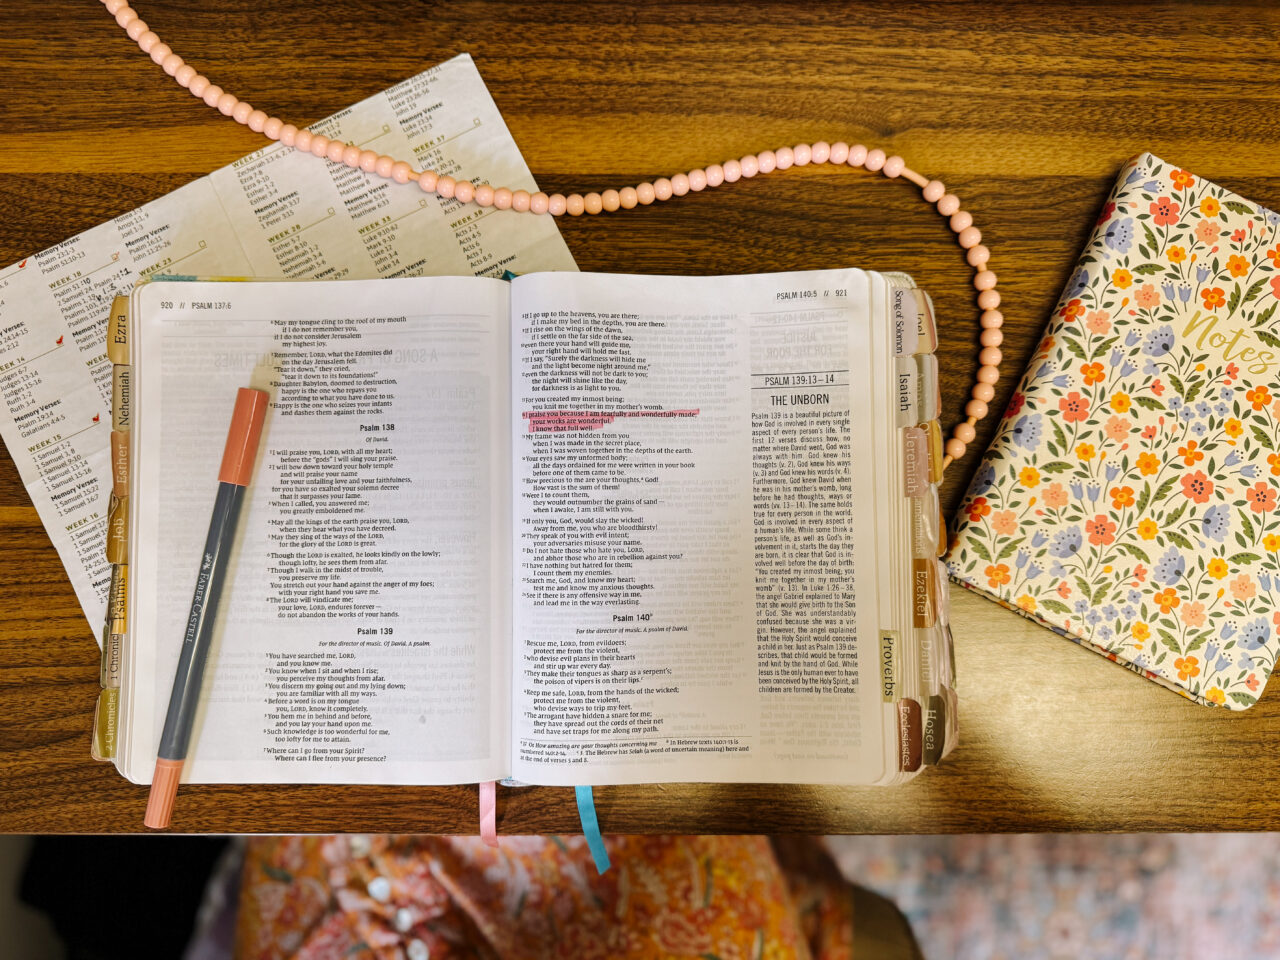 920 // PSALM 137:6
May my tongue cling to the roof of my mouth
if I do not remember you,
if I do not consider Jerusalem
my highest joy.
Remember, LORD, what the Edomites did
on the day Jerusalem fell.
"Tear it down," they cried,
"tear it down to its foundations!"
Daughter Babylon, doomed to destruction,
happy is the one who repays you
according to what you have done to us.
Happy is the one who seizes your infants
and dashes them against the rocks.
Psalm 138
Of David.
1 I will praise you, LORD, with all my heart;
before the "gods" I will sing your praise.
2 I will bow down toward your holy temple
and will praise your name
for your unfailing love and your faithfulness,
for you have so exalted your solemn decree
that it surpasses your fame.
3 When I called, you answered me;
you greatly emboldened me.
4 May all the kings of the earth praise you, LORD,
when they hear what you have decreed.
5 May they sing of the ways of the LORD,
for the glory of the LORD is great.
6 Though the LORD is exalted, he looks kindly on the lowly;
though lofty, he sees them from afar.
7 Though I walk in the midst of trouble,
you preserve my life.
You stretch out your hand against the anger of my foes;
with your right hand you save me.
8 The LORD will vindicate me;
your love, LORD, endures forever—
do not abandon the works of your hands.
Psalm 139
For the director of music. Of David. A psalm.
1 You have searched me, LORD,
and you know me.
2 You know when I sit and when I rise;
you perceive my thoughts from afar.
3 You discern my going out and my lying down;
you are familiar with all my ways.
4 Before a word is on my tongue
you, LORD, know it completely.
5 You hem me in behind and before,
and you lay your hand upon me.
6 Such knowledge is too wonderful for me,
too lofty for me to attain.
7 Where can I go from your Spirit?
Where can I flee from your presence?
PSALM 140:5 // 921
8 If I go up to the heavens, you are there;
if I make my bed in the depths, you are there.
9 If I rise on the wings of the dawn,
if I settle on the far side of the sea,
10 even there your hand will guide me,
your right hand will hold me fast.
11 If I say, "Surely the darkness will hide me
and the light become night around me,"
12 even the darkness will not be dark to you;
the night will shine like the day,
for darkness is as light to you.
13 For you created my inmost being;
you knit me together in my mother's womb.
14 I praise you because I am fearfully and wonderfully made;
your works are wonderful,
I know that full well.
15 My frame was not hidden from you
when I was made in the secret place,
when I was woven together in the depths of the earth.
16 Your eyes saw my unformed body;
all the days ordained for me were written in your book
before one of them came to be.
17 How precious to me are your thoughts, God!
How vast is the sum of them!
18 Were I to count them,
they would outnumber the grains of sand—
when I awake, I am still with you.
19 If only you, God, would slay the wicked!
Away from me, you who are bloodthirsty!
20 They speak of you with evil intent;
your adversaries misuse your name.
21 Do I not hate those who hate you, LORD,
and abhor those who are in rebellion against you?
22 I have nothing but hatred for them;
I count them my enemies.
23 Search me, God, and know my heart;
test me and know my anxious thoughts.
24 See if there is any offensive way in me,
and lead me in the way everlasting.
Psalm 140
For the director of music. A psalm of David.
1 Rescue me, LORD, from evildoers;
protect me from the violent,
2 who devise evil plans in their hearts
and stir up war every day.
3 They make their tongues as sharp as a serpent's;
the poison of vipers is on their lips.
4 Keep me safe, LORD, from the hands of the wicked;
protect me from the violent,
who devise ways to trip my feet.
5 The arrogant have hidden a snare for me;
they have spread out the cords of their net
and have set traps for me along my path.
17 Or How amazing are your thoughts concerning me In Hebrew texts 140:1-13 is
numbered 140:2-14. 3 The Hebrew has Selah (a word of uncertain meaning) here and
at the end of verses 5 and 8.
PSALM 139:13–14
THE UNBORN
Psalm 139 is a beautiful picture of
how God is involved in every single
aspect of every person's life. The
first 12 verses discuss how, no
matter where David went, God was
always with him. God knew his
thoughts (v. 2), God knew his ways
(v. 3) and God knew his words (v. 4).
Furthermore, God knew David when
he was in his mother's womb, long
before he had thoughts, ways or
words (vv. 13–14). The same holds
true for every person in the world.
God is involved in every aspect of
a human's life. While some think a
person's life, as well as God's in-
volvement in it, starts the day they
are born, it is clear that God is in-
volved well before the day of birth:
"You created my inmost being; you
knit me together in my mother's
womb" (v. 13). In Luke 1:26–38,
the angel Gabriel explained to Mary
that she would give birth to the Son
of God. She was understandably
confused because she was a vir-
gin. However, the angel explained
that the Holy Spirit would conceive
a child in her. Just as Psalm 139 de-
scribes, that child would be formed
and knit by the hand of God. While
Jesus is the only human ever to have
been conceived by the Holy Spirit, all
children are formed by the Creator.
Ezra
Nehemiah
Esther
Job
Psalms
1 Chronicles
2 Chronicles
Song of Solomon
Joel
Isaiah
Jeremiah
Lamentations
Ezekiel
Daniel
Proverbs
Hosea
Ecclesiastes
FABER-CASTELL
Notes
WEEK 27
Ezra 2-8
Ezra 9-10
Esther 1-2
Esther 3-4
Memory Verses:
Zephaniah 3:17
1 Peter 3:15
WEEK 28
Esther 5-7
Esther 8-10
Nehemiah 1-2
Nehemiah 3-4
Nehemiah 5-6
Memory Verses:
Matthew 5:16
Matthew 6:33
Luke 9:10-62
Mark 9-10
Luke 12
WEEK 37
Mark 16
Luke 24
WEEK 38
Acts 2-3
Acts 4-5
Acts 6
Acts 7
Acts 8-9
Matthew 27:32-66
Luke 23:26-56
John 19
Memory Verses:
Luke 23:34
John 17:3
Memory Verses:
Psalm 16:11
John 11:25-26
WEEK 23
Memory Verses:
Psalm 23:1-3
Psalm 51:10-13
WEEK 18
WEEK 14
Judges 6-7
Judges 13-14
Judges 15-16
Ruth 1-2
Ruth 3-4
Memory Verses:
Psalm 19:14
Galatians 4:4-5
WEEK 15
1 Samuel 1-2
1 Samuel 3, 8
1 Samuel 9-10
1 Samuel 13-14
1 Samuel 15-16
Memory Verses:
1 Samuel 15:22
1 Samuel 16:7
WEEK 16